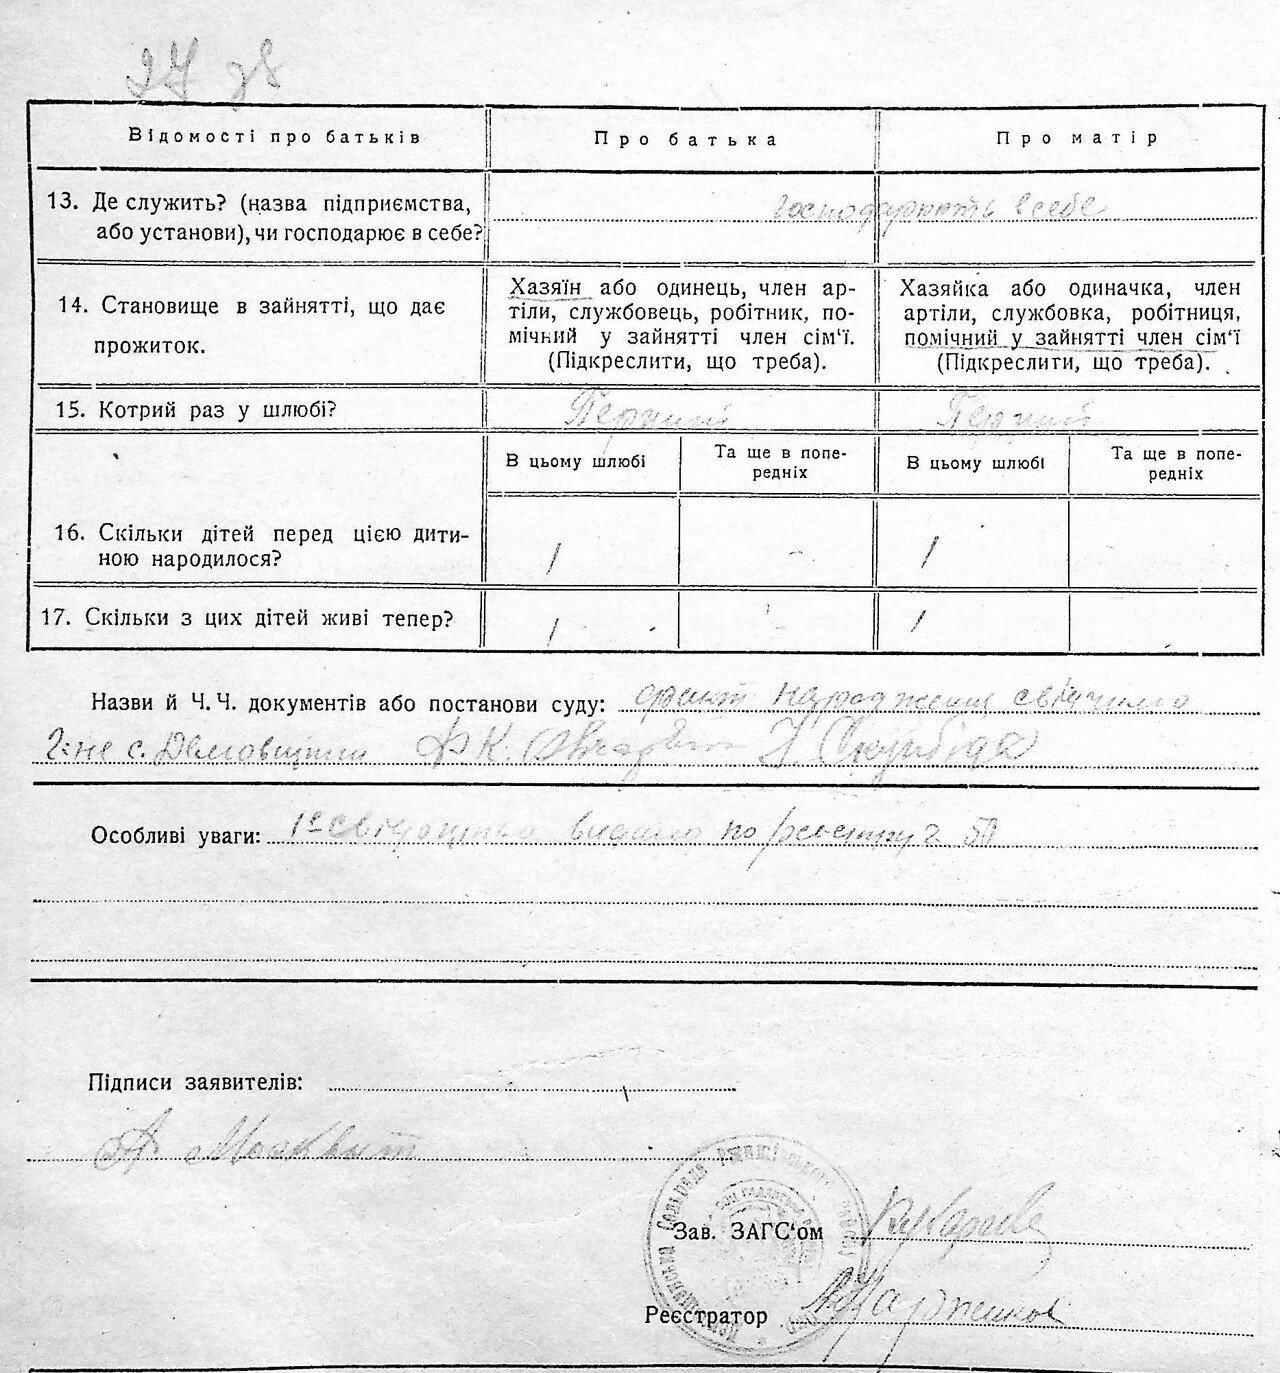 27 зв
Відомості про батьків
Про батька
Про матір
13. Де служить? (назва підприємства,
або установи), чи господарює в себе?
господарюють в себе
14. Становище в зайнятті, що дає
прожиток.
Хазяїн або одинець, член ар-
тіли, службовець, робітник, по-
мічний у зайнятті член сім'ї.
(Підкреслити, що треба).
Хазяйка або одиначка, член
артіли, службовка, робітниця,
помічний у зайнятті член сім'ї
(Підкреслити, що треба).
15. Котрий раз у шлюбі?
Перший
Перший
В цьому шлюбі
Та ще в попе-
редніх
В цьому шлюбі
Та ще в попе-
редніх
16. Скільки дітей перед цією дити-
ною народилося?
1
-
1
17. Скільки з цих дітей живі тепер?
1
-
1
Назви й Ч. Ч. документів або постанови суду: факт народження свідчимо
с. Демовщини
Особливі уваги: свідоцтво видано по реєстру 2
Підписи заявителів:
А. Москвит
Зав. ЗАГС'ом
Реєстратор
Сельрада Ржищівського